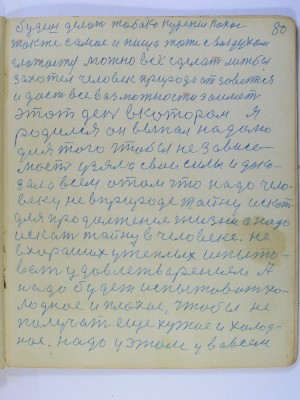 80
будем делать табако курении плохое
также самое и пища тоже с воздухом
можно всё сделат лиш бы
захотел человек природа отзовется
и даст все возможности займет
этот день в котором Я
родился он выпал надолю
для того чтобы не зависи
мост узяла свои силы и дока
зала всем о том что надо чело
веку не в природе тайну искат
для продолжения жизни а надо
искат тайну в человеке. не
в хороших у теплых испыто
ват удовлетворением А
надо будет испытоват хо
лодное и плохое, чтобы не
получат еще хужее и холод
ное. надо у этом у во всем